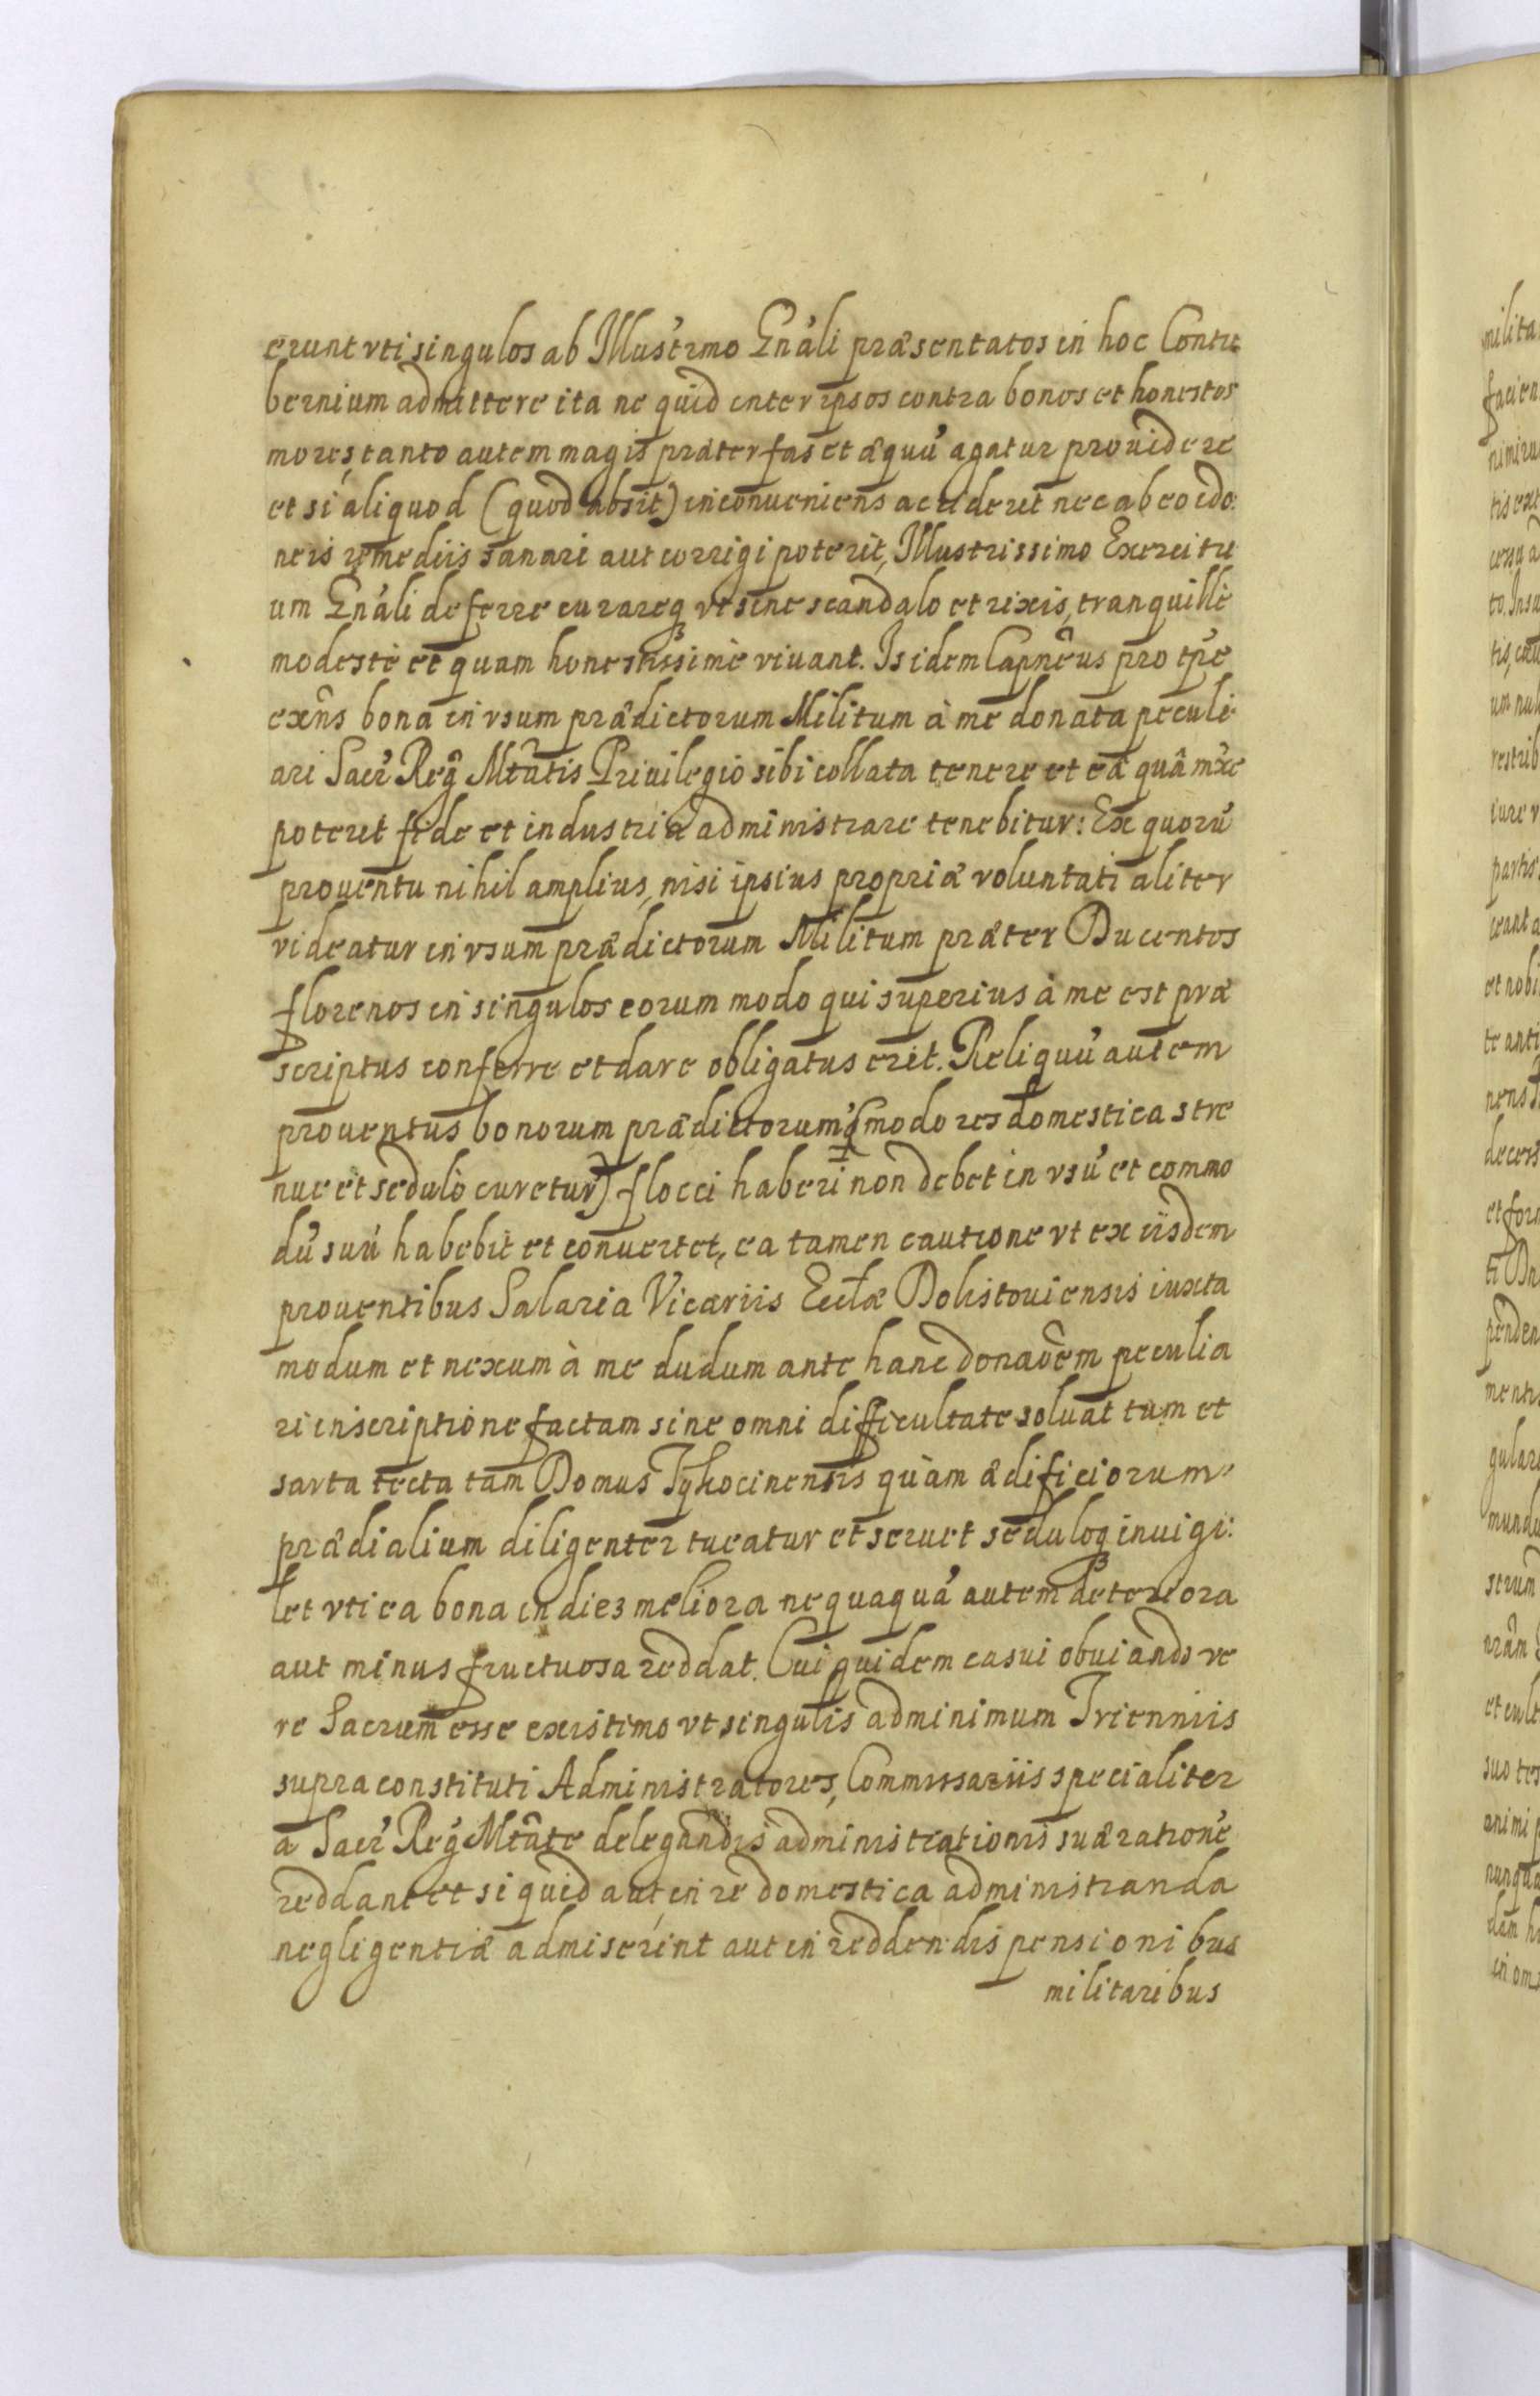 erunt vti singulos ab Illustrmo Gn̄ali præsentatos in hoc Contu-
bernium admittere ita ne quid inter ipsos contra bonos et honestos
mores, tanto autem magis præter fas et æquū agatur prouidere
et si aliquod (quod absit) inconueniens accideret nec ab eo ido-
neis remediis sanari aut corrigi poterit, Illustrissimo Exercitu
um Gn̄ali deferre curareq₃ vt sine scandalo et rixis, tranquillè
modestè et quam honestissimè viuant. Is idem Capn̄eus pro tp̄e
exn̄s bona in vsum prædictorum Militum à me donata peculi-
ari Sacr̄ Reḡ Mtātis Priuilegio sibi collata tenere et eā quâ mx̄e
poterit fide et industria administrare tenebitur: Ex quorū
prouentu nihil amplius, nisi ipsius propriæ voluntati aliter
videatur in vsum prædictorum Militum præter Ducentos
florenos in singulos eorum modo qui superius à me est præ
scriptus conferre et dare obligatus erit. Reliquū autem
prouentus bonorum prædictorum modo res domestica stre
nue et sedulò curetur) flocci haberi non debet in vsū et commo
dū suū habebit et conuertet, ea tamen cautione vt ex iisdem
prouentibus Salaria Vicariis Eccl̄æ Dolistouiensis iuxta
modum et nexum à me dudum ante hanc donaōem peculia
ri inscriptione factam sine omni difficultate soluat tum et
sarta tecta tam Domus Tykocinensis quàm ædificiorum
prædialium diligenter tueatur et seruet seduloq₃ inuigi-
let vti ea bona in dies meliora nequaquā autem deteriora
aut minus fructuosa reddat. Cui quidem casui obuiando ve
re Sacrum esse existimo vt singulis adminimum Trienniis
supra constituti Administratores, Commissariis specialiter
a Sacr̄ Reḡ Mtāte delegandis administrationis suæ rationē
reddant et si quid aut in re domestica administranda
negligentiæ admiserint aut in reddendis pensionibus
militaribus